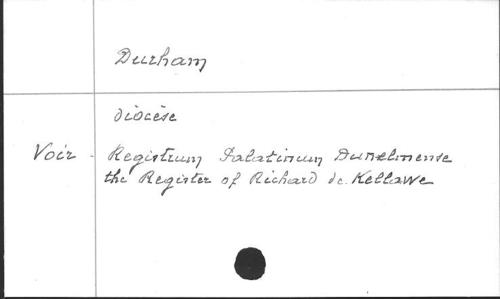 Durham
diocèse
Voir - Registrum Palatinum Dunelmense
the Register of Richard de Kellawe